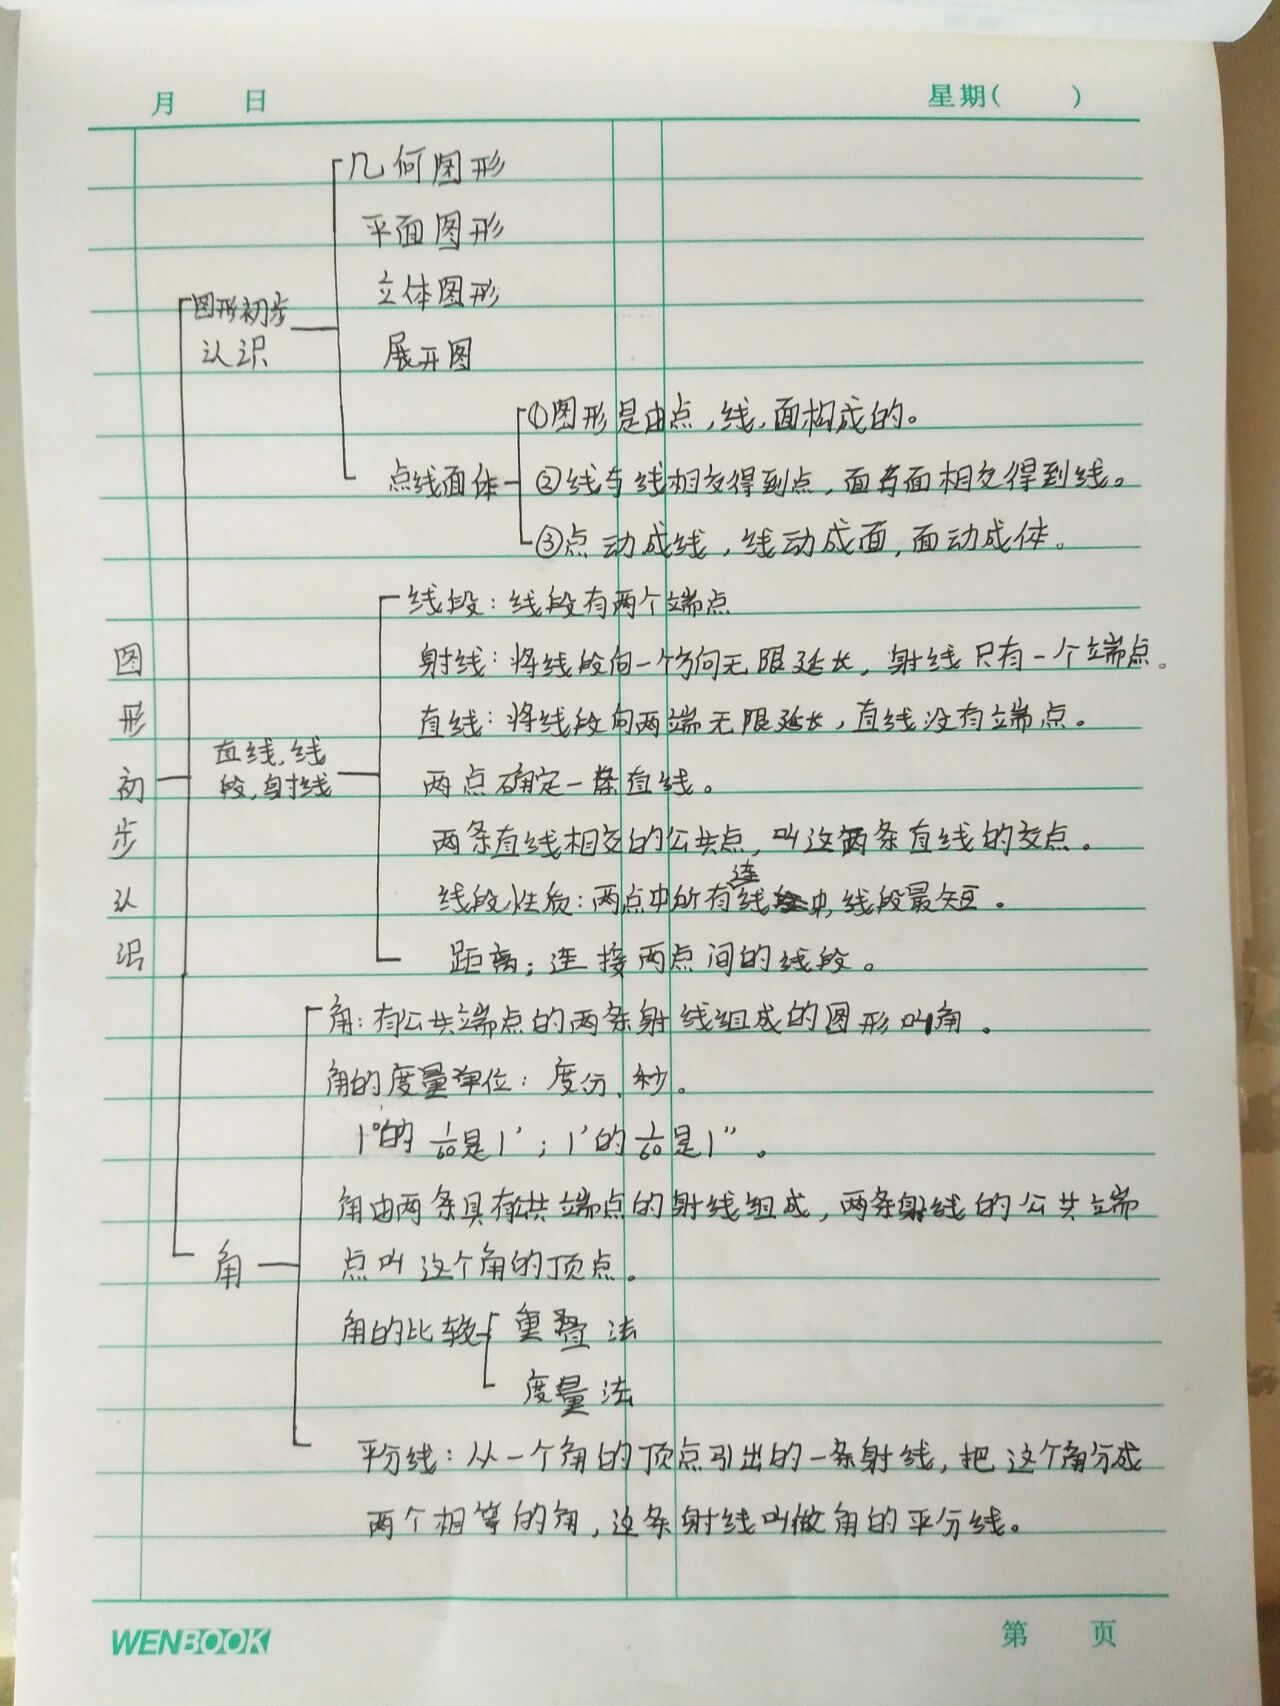 月 日 星期( )
几何图形
平面图形
立体图形
图形初步
认识
展开图
①图形是由点,线,面构成的。
点线面体
②线与线相交得到点,面与面相交得到线。
③点动成线,线动成面,面动成体。
图形初步认识
直线,线
段,射线
线段:线段有两个端点
射线:将线段向一个方向无限延长,射线只有一个端点。
直线:将线段向两端无限延长,直线没有端点。
两点确定一条直线。
两条直线相交的公共点,叫这两条直线的交点。
线段性质:两点中所有连线中,线段最短。
距离;连接两点间的线段。
角
角:有公共端点的两条射线组成的图形叫角。
角的度量单位:度分、秒。
1°的1/60是1′;1′的1/60是1″。
角由两条具有公共端点的射线组成,两条射线的公共端
点叫这个角的顶点。
角的比较
重叠法
度量法
平分线:从一个角的顶点引出的一条射线,把这个角分成
两个相等的角,这条射线叫做角的平分线。
WENBOOK
第 页